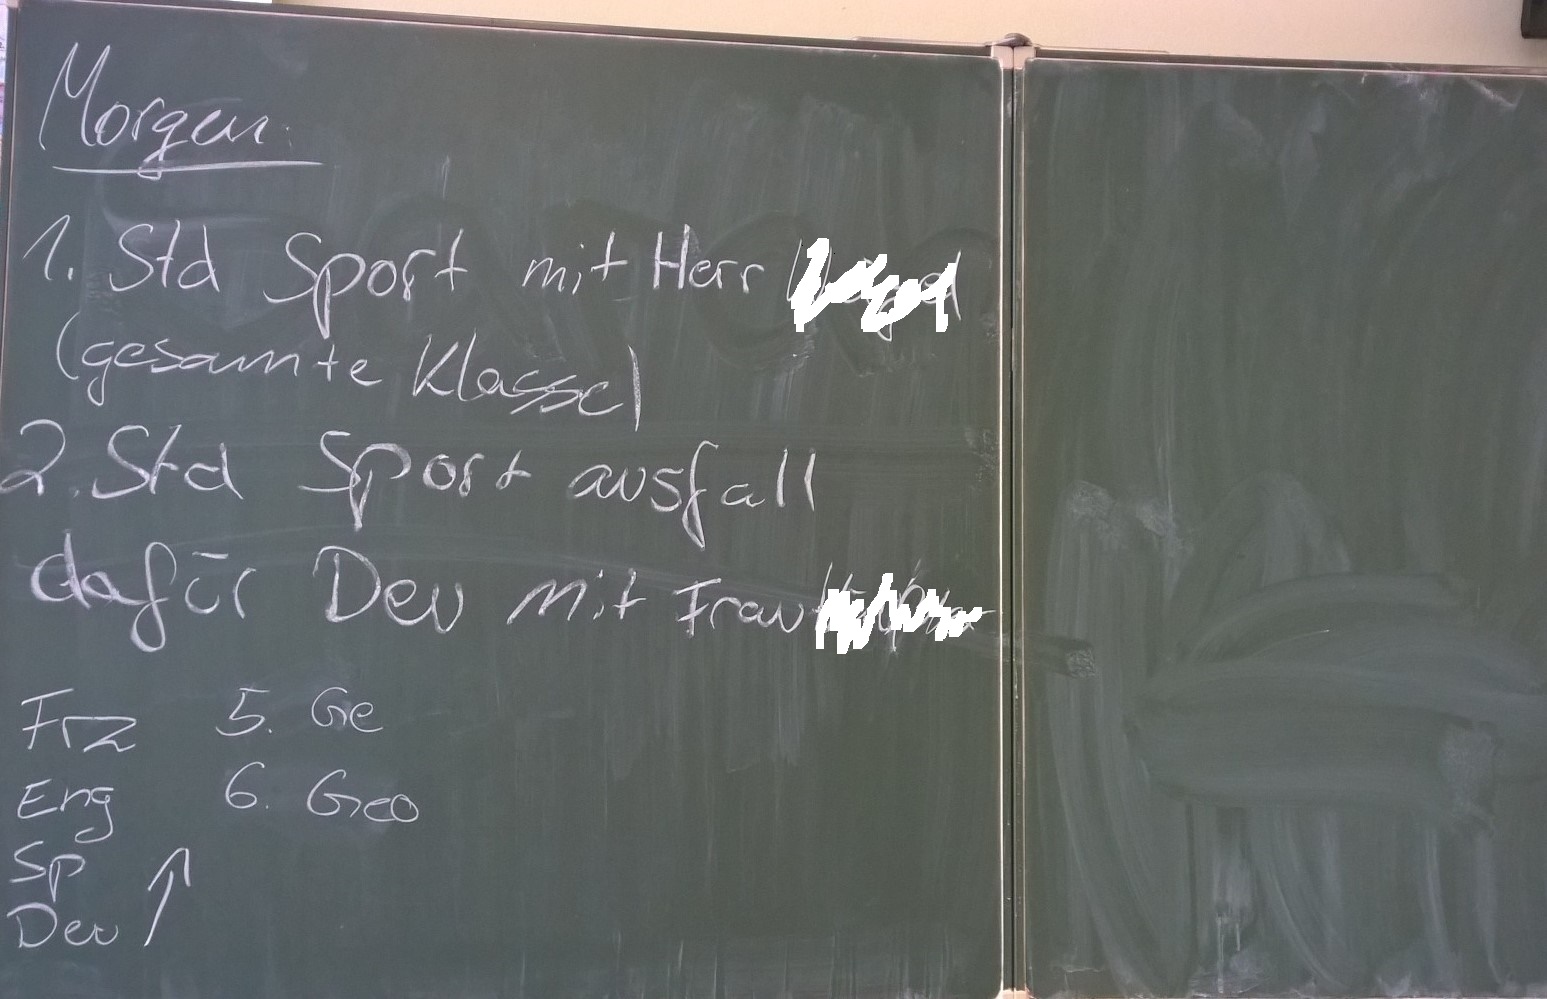 Morgen:
1. Std Sport mit Herr
(gesamte Klasse)
2. Std Sport ausfall
dafür Deu mit Frau
Frz 5. Ge
Eng 6. Geo
Sp
Deu ↑